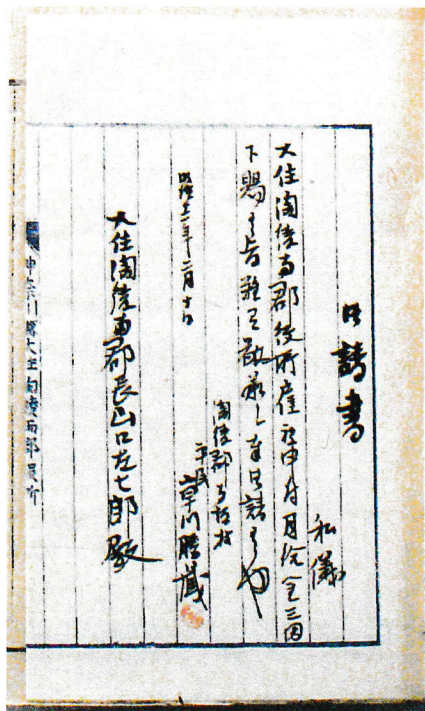 御請書
私儀
大住淘綾両郡役所雇被申付月給金三円
下賜之旨難有敬承之奉御請候也
淘綾郡
平民 草川
明治十二年二月十日
大住淘綾両郡長山口左七郎殿
神奈川縣大住淘綾両郡役所